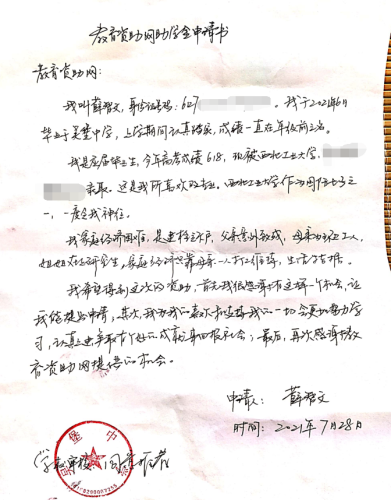 教育资助网助学金申请书
教育资助网：
我叫薛智文，身份证号码：627。我于2021年6月
毕业于吴堡中学，上学期间认真踏实，成绩一直在年级前三名。
我是应届毕业生，今年高考成绩618，现被西北工业大学，
录取。这是我所喜欢的专业。西北工业大学作为国防七子之
一，一度令我神往。
我家庭经济困难，是建档立卡户，父亲务农，母亲为环卫工人，
姐姐在读研究生，家庭经济只靠母亲一人打工维持，生活
我希望得到这次的资助，首先我很感谢有这样一个机会，让
我能提出申请，其次，我为我的喜欢和选择我的一切会更加努力学
习，认真进争取有个好的成就来回报社会；最后，再次感谢教
育资助网提供的机会。
申请人：薛智文
时间：2021年7月28日
学校审核：同意